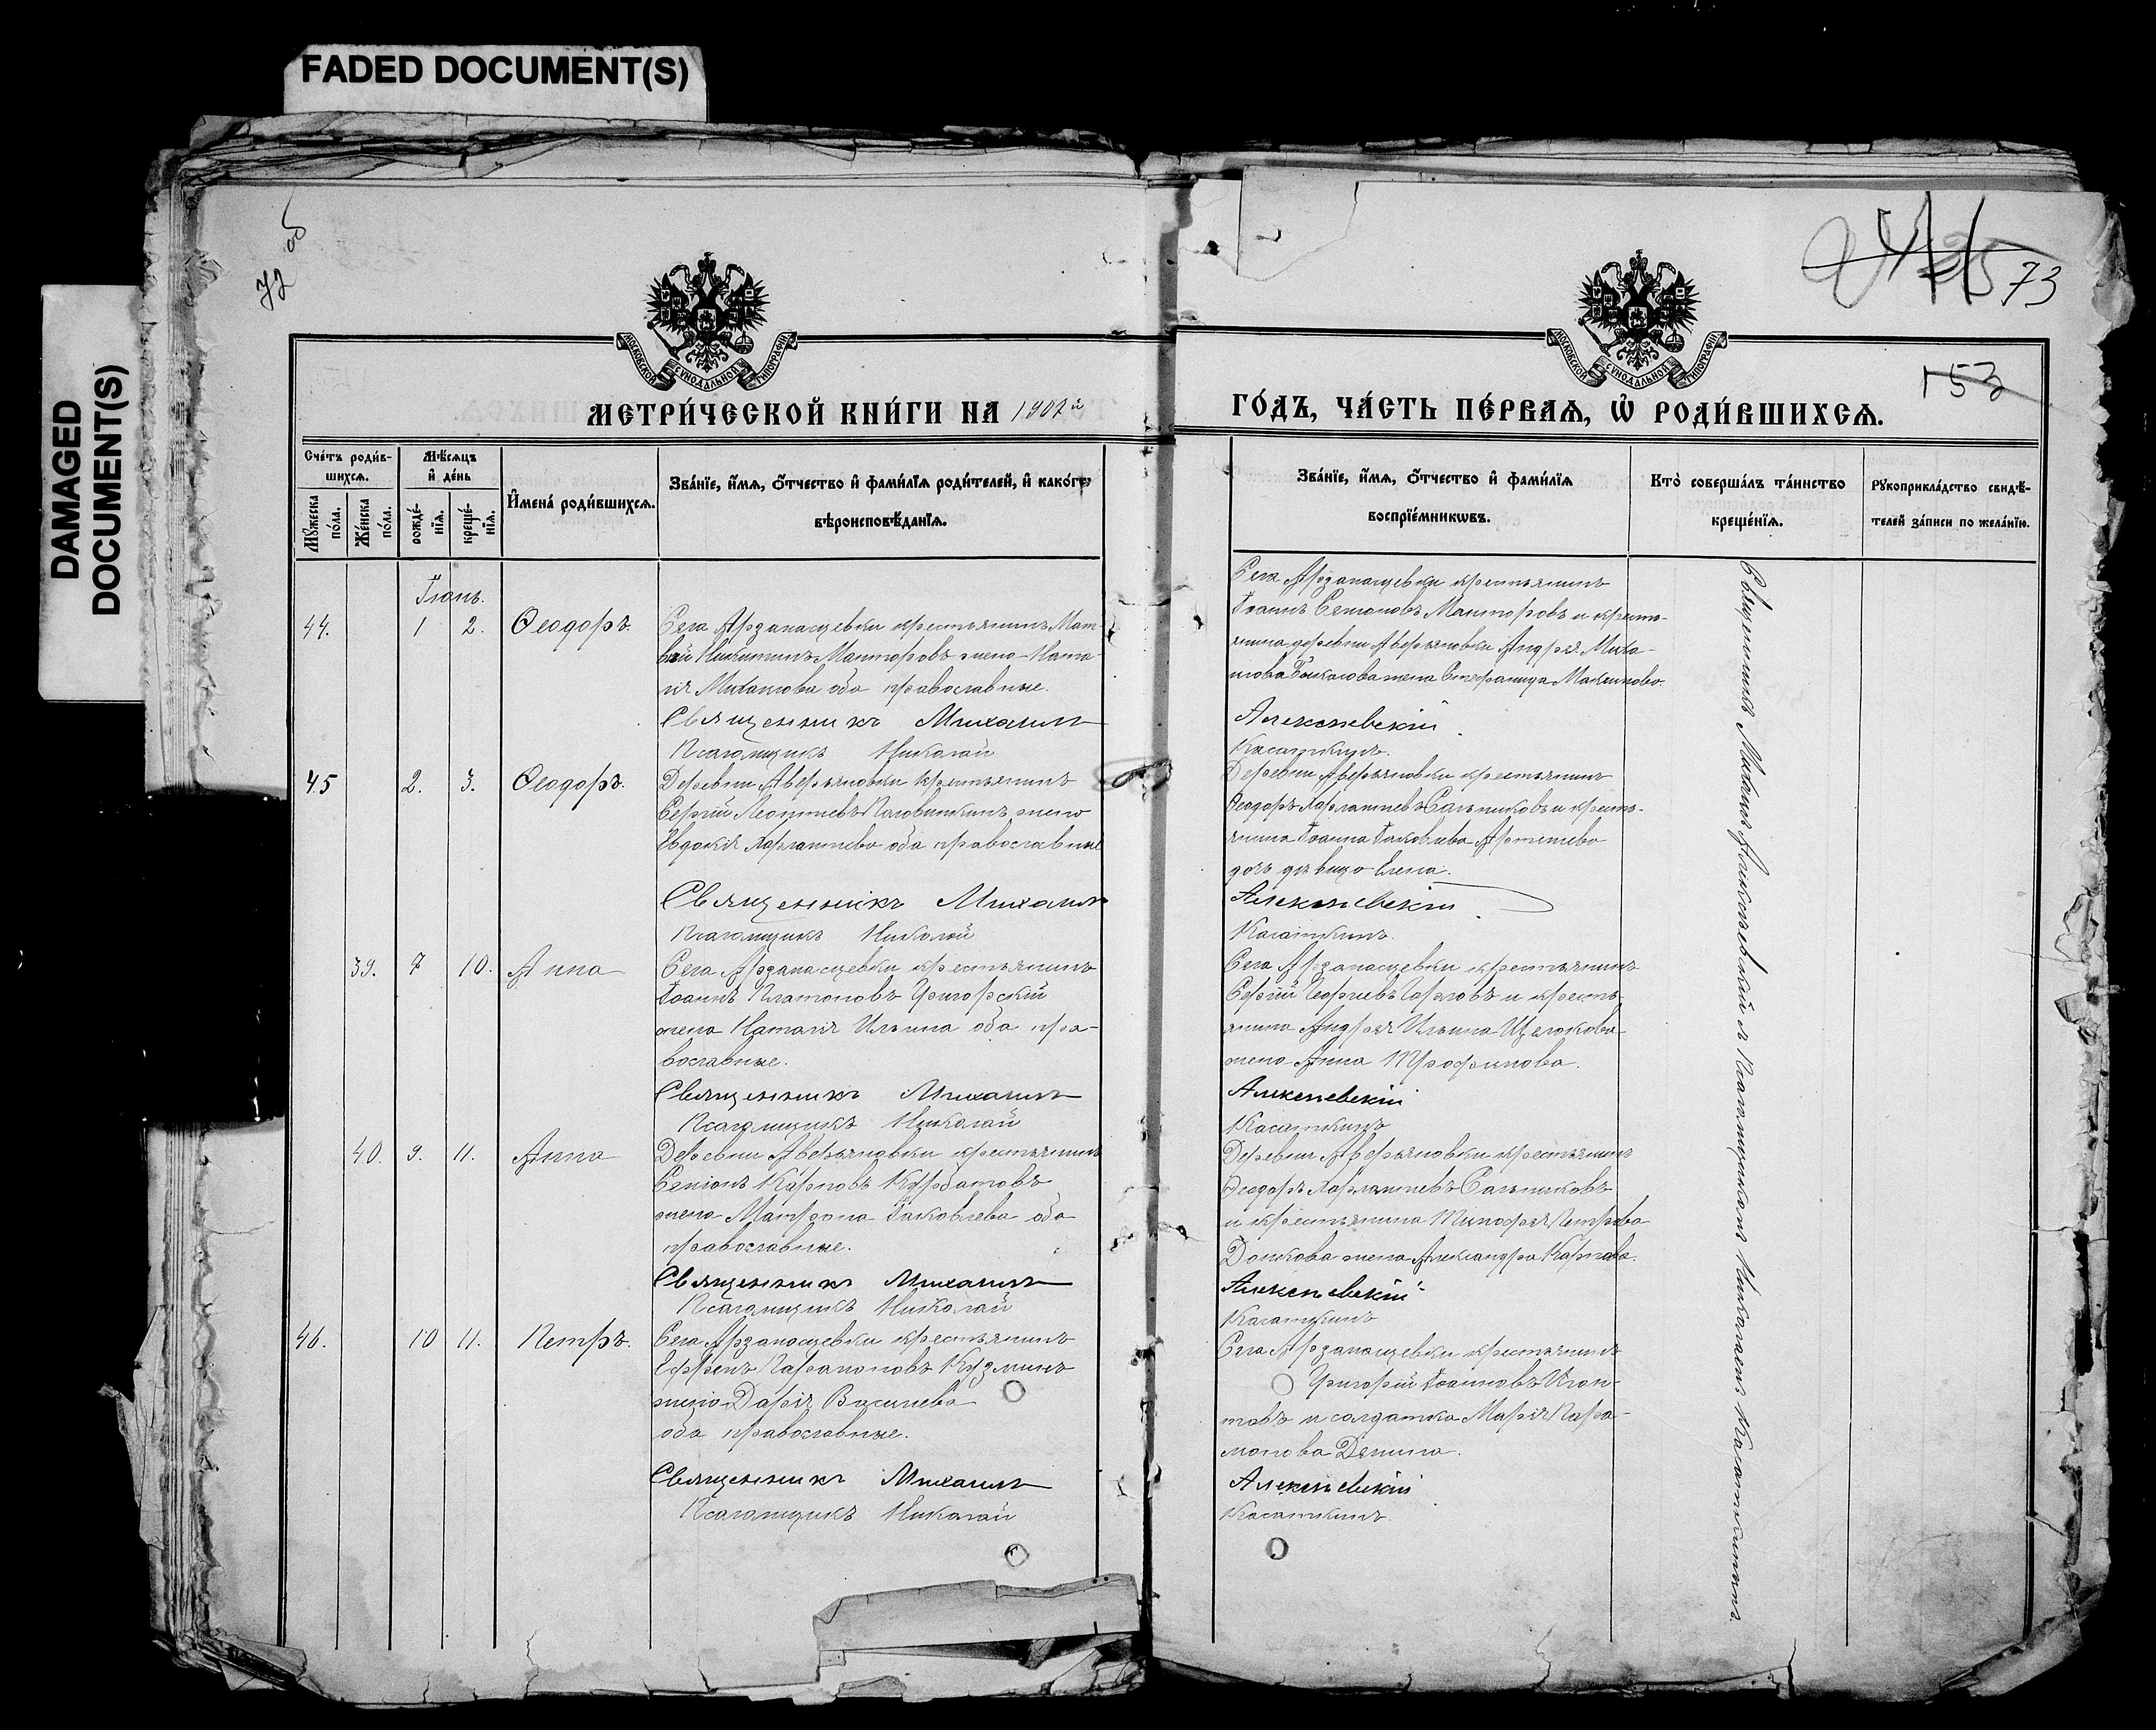 FADED DOCUMENT(S)
DAMAGED
DOCUMENT(S)
72 об
73
153
МОСКОВСКОЙ СѴНОДАЛЬНОЙ ТИПОГРАФІИ
МОСКОВСКОЙ СѴНОДАЛЬНОЙ ТИПОГРАФІИ
МЕТРИ́ЧЕСКОЙ КНИ́ГИ НА 1902й
ГО́ДЪ, ЧА́СТЬ ПЕ́РВАѦ, Ѡ҆ РОДИ́ВШИХСѦ.
Сче́тъ роди́в-
шихсѧ.
Мꙋ́жеска по́ла.
Же́нска по́ла.
Мѣ́сѧцъ
и҆ де́нь
рожде́-
нїѧ.
креще́-
нїѧ.
И҆мена̀ роди́вшихсѧ.
Зва́нїе, и҆́мѧ, ѻ҆́тчество и҆ фами́лїѧ роди́телей, и҆ како́гѡ
вѣроисповѣ́данїѧ.
Зва́нїе, и҆́мѧ, ѻ҆́тчество и҆ фами́лїѧ
воспрїе́мникѡвъ.
Кто̀ соверша́лъ та́инство
креще́нїѧ.
Рꙋкоприкла́дство свидѣ́-
телей за́писи по жела́нїю.
44.
1
2.
Ѳеодоръ.
Села Арзанасцевки крестьянинъ Мат-
вѣй Никитинъ Маиторовъ жена Ната-
лія Михаилова оба православные.
Священникъ Михаилъ
Псаломщикъ Николай
Села Арзанасцевки крестьянинъ
Іоаннъ Семеновъ Маиторовъ и кресть-
янина деревни Аверьяновки Андрея Миха-
илова жена Стефанида Максимова
Алексѣевскій
Касаткинъ.
45
2.
3.
Ѳеодоръ.
Деревни Аверьяновки крестьянинъ
Сергій Леонтіевъ Половинкинъ жена
Евдокія Харлампіева оба православные
Священникъ Михаилъ
Псаломщикъ Николай
Деревни Аверьяновки крестьянинъ
Ѳеодоръ Харлампіевъ Сальниковъ и кресть-
янина Іоанна Іаковлева Артемьева
дочь дѣвица Елена.
Алексѣевскій
Касаткинъ.
39.
7
10.
Анна
Села Арзанасцевки крестьянинъ
Іоаннъ Платоновъ Григорскій
жена Наталія Ильина оба пра-
вославные.
Священникъ Михаилъ
Псаломщикъ Николай
Села Арзанасцевки крестьянинъ
Сергій Георгіевъ и кресть-
янина Андрея Ильина Щелокова
жена Анна Трофимова.
Алексѣевскій
Касаткинъ
40.
9.
11.
Анна
Деревни Аверьяновки крестьянинъ
Семіонъ Карповъ Курбатовъ
жена Матрона Іаковлева оба
православные.
Священникъ Михаилъ
Псаломщикъ Николай
Деревни Аверьяновки крестьянинъ
Ѳеодоръ Харлампіевъ Сальниковъ
и крестьянина Тимофея Петрова
Донкова жена Александра Карпова.
Алексѣевскій
Касаткинъ
46.
10
11.
Петръ.
Села Арзанасцевки крестьянинъ
Ефремъ Парамоновъ Кузминъ
жена Дарія Васильева
оба православные.
Священникъ Михаилъ
Псаломщикъ Николай
Села Арзанасцевки крестьянинъ
Григорій Іоанновъ Игна-
товъ и солдатка Марія Пара-
монова Демина.
Алексѣевскій
Касаткинъ.
Священникъ Михаилъ Алексѣевскій съ Псаломщикомъ Николаемъ Касаткинымъ.